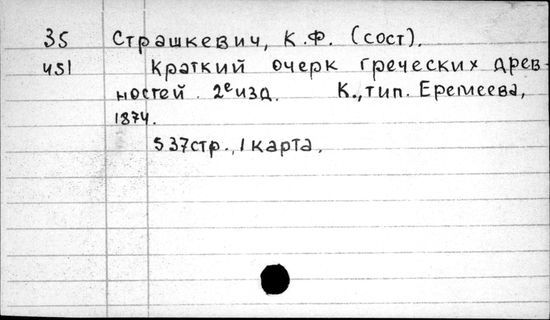 35 Страшкевич, К.Ф. (сост).
451 Краткий очерк греческих древ-
ностей. 2е изд. К., тип. Еремеева,
1874.
537стр., 1 карта.